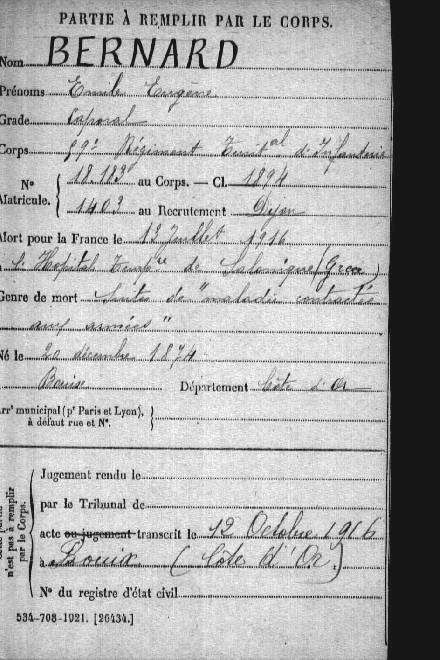 PARTIE À REMPLIR PAR LE CORPS.
Nom BERNARD
Prénoms Emile Eugene
Grade Caporal
Corps Régiment Territ.al d'Infanterie
N° 18.183 au Corps. — Cl. 1894
Matricule. 1403 au Recrutement Dijon
Mort pour la France le 12 Juillet 1916
à l'Hopital Temp.re de Salonique (Grèce)
Genre de mort Suites de "maladie contractée
aux armées"
Né le 20 décembre 1874
Bouix Département Côte d'Or
Arr' municipal (p' Paris et Lyon),
à défaut rue et N°.
Jugement rendu le
par le Tribunal de
acte ou jugement transcrit le 12 Octobre 1916
à Bouix (Côte d'Or)
N° du registre d'état civil
n'est pas à remplir
par le Corps.
534-708-1921. [26434.]